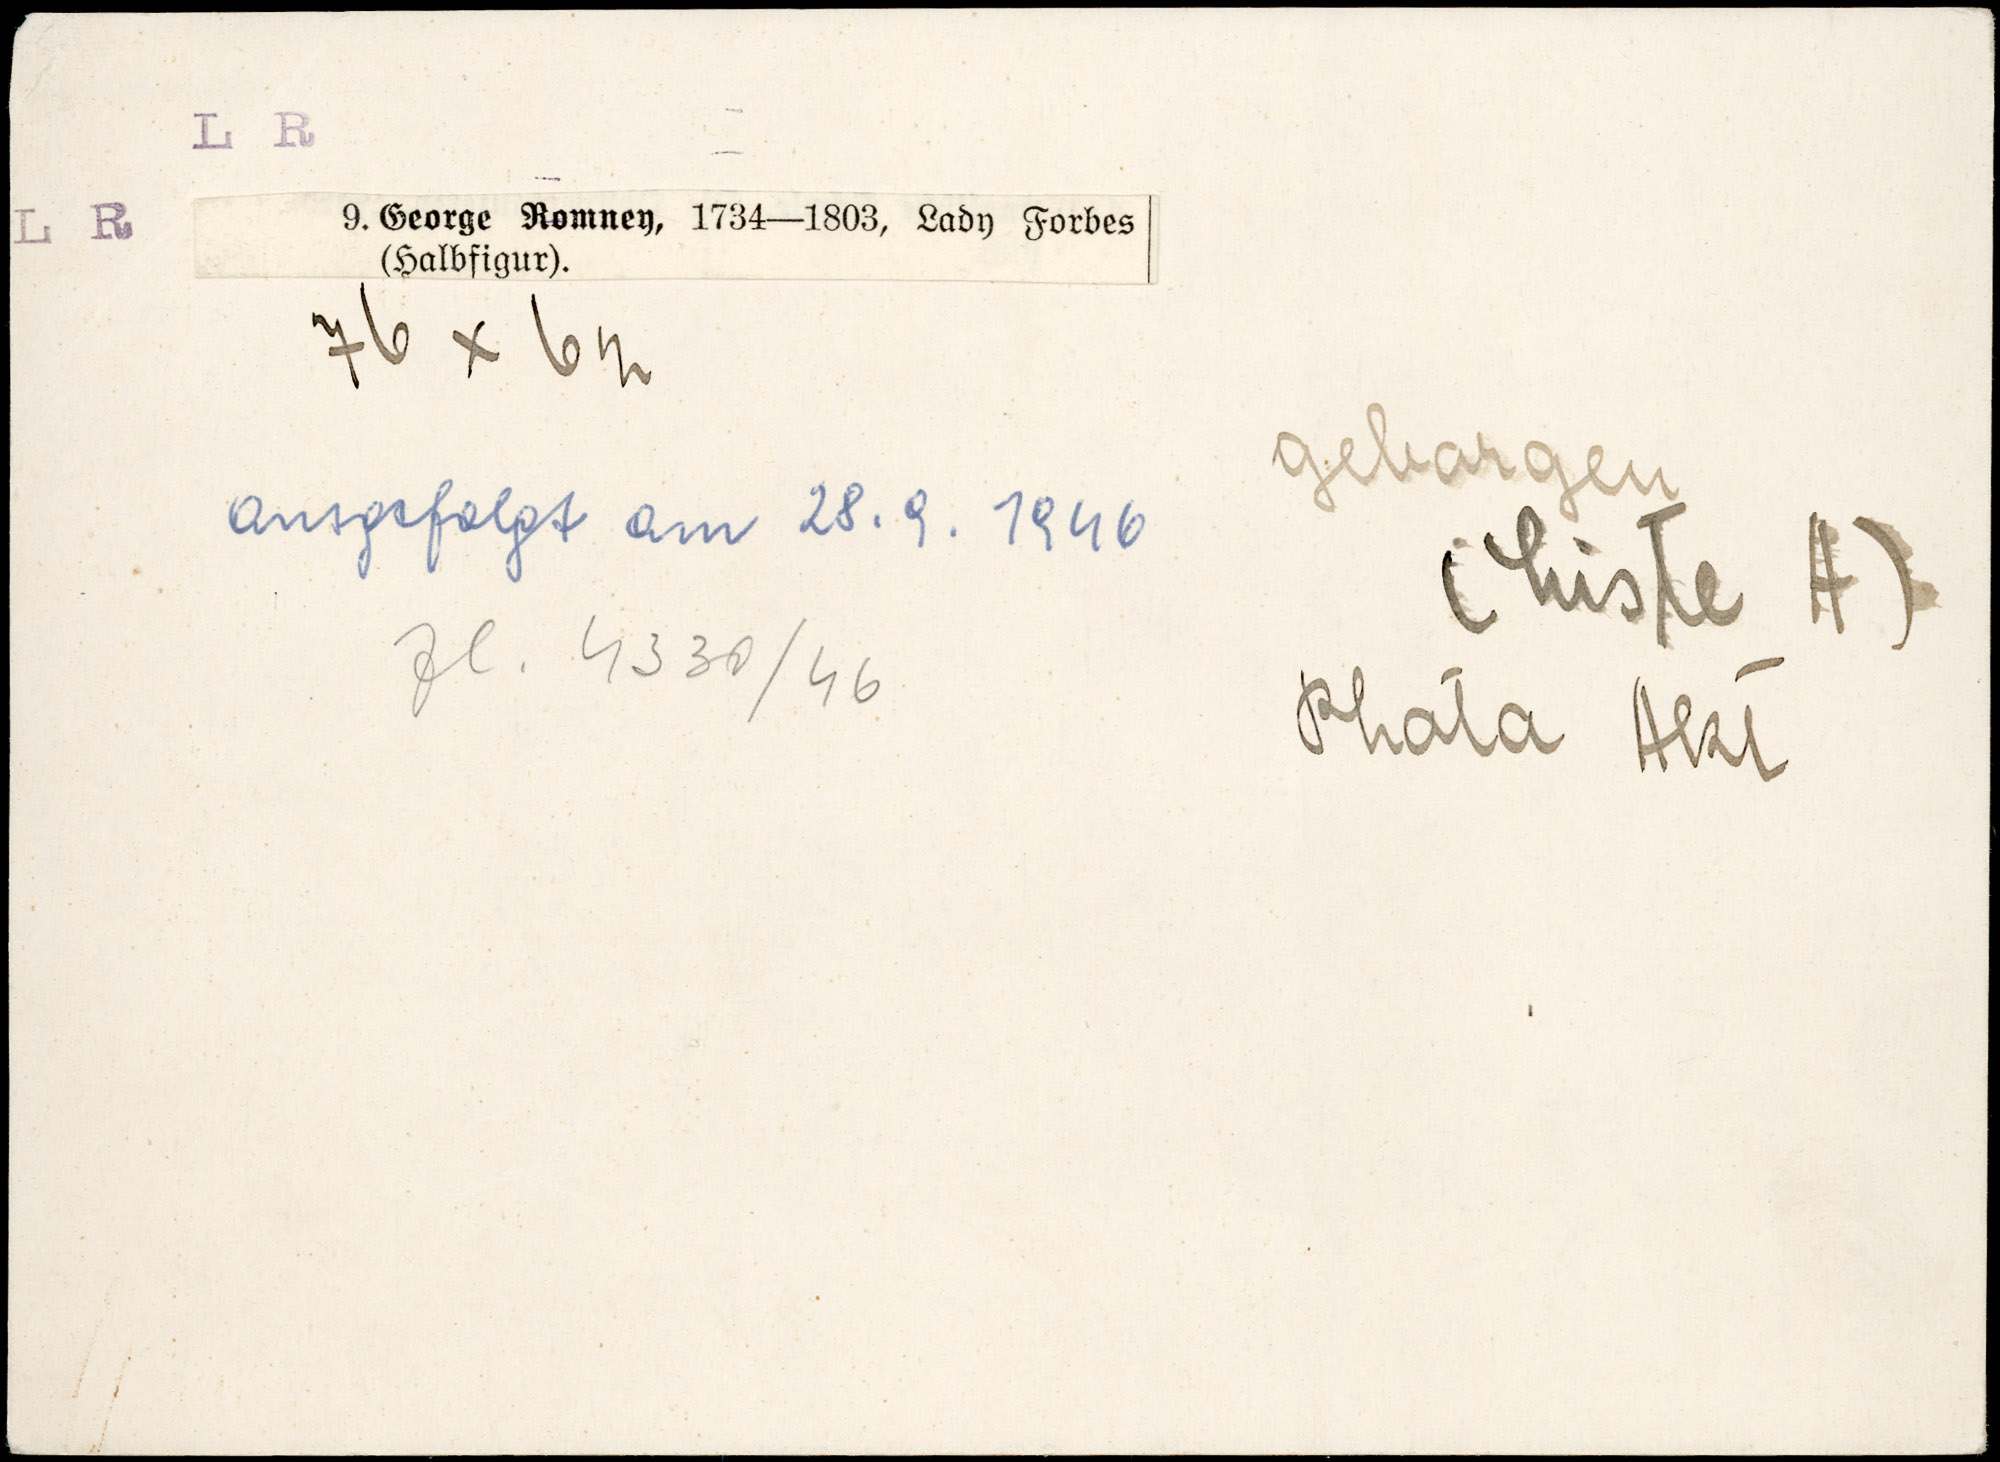 L R
L R
9. George Romney, 1734—1803, Lady Forbes
(Halbfigur).
76 x 64
ausgefolgt am 28. 9. 1946
Zl. 4330/46
geborgen
(Liste A)
Photo Akt